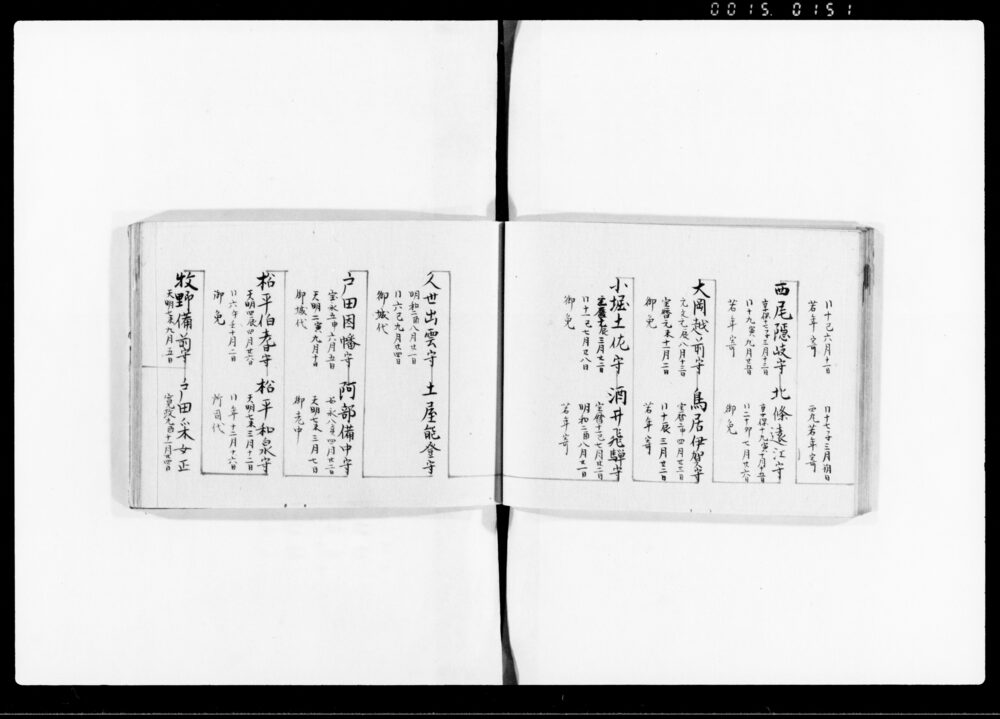 0015.0151
〃十乙六月十一日
若年寄
〃十七子三月朔日
西丸若年寄
西尾隠岐守
享保十七子三月十二日
〃十九寅九月廿五日
若年寄
北條遠江守
享保十九寅十月十五日
〃二十卯七月廿六日
御免
大岡越前守
元文元辰八月十二日
宝暦元未十一月二日
御免
鳥居伊賀守
〃十辰三月廿二日
若年寄
小堀土佐守
〃十一巳七月廿八日
御免
酒井飛騨守
明和二酉八月廿一日
若年寄
久世出雲守
明和二酉八月廿一日
〃六己九月廿四日
御城代
土屋能登守
戸田因幡守
安永五申六月五日
天明二寅九月十日
御城代
阿部備中守
安永八亥四月廿三日
天明七未三月七日
御老中
松平伯耆守
天明四辰四月廿六日
〃六午壬十月二日
御免
松平和泉守
天明七未三月十二日
〃年十二月十六日
所司代
牧野備前守
天明七未九月五日
戸田采女正
寛政元酉十一月廿四日